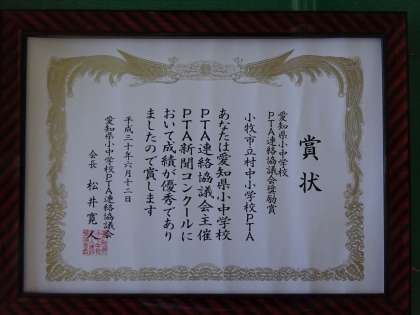 賞状
愛知県小中学校
PTA連絡協議会奨励賞
小牧市立村中小学校PTA
あなたは愛知県小中学校
PTA連絡協議会主催
PTA新聞コンクールに
おいて成績が優秀であり
ましたので賞します
平成三十年六月十二日
愛知県小中学校PTA連絡協議会
会長 松井寛人